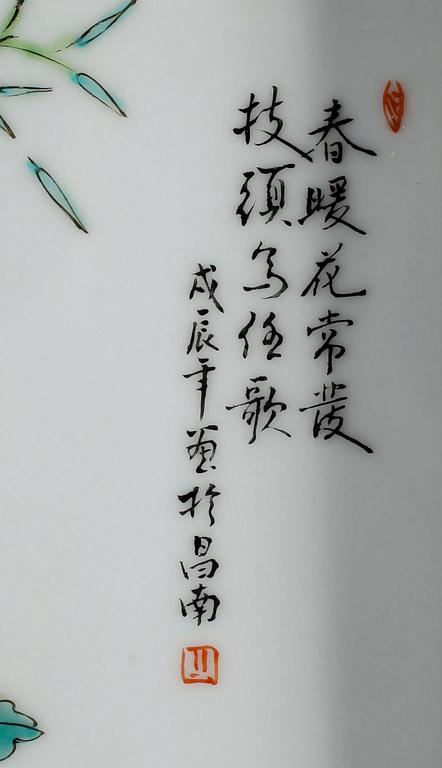 春暖花常發
枝頭鳥任歌
戊辰年夏於昌南